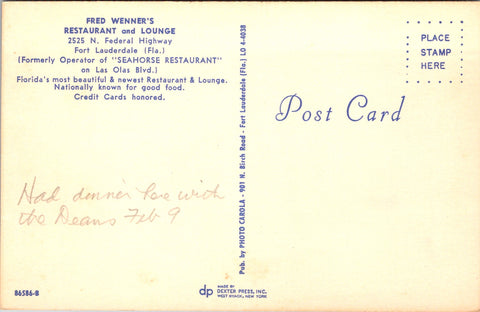 FRED WENNER'S
RESTAURANT and LOUNGE
2525 N. Federal Highway
Fort Lauderdale (Fla.)
(Formerly Operator of "SEAHORSE RESTAURANT"
on Las Olas Blvd.)
Florida's most beautiful & newest Restaurant & Lounge.
Nationally known for good food.
Credit Cards honored.
Had dinner here with
the Deans Feb 9
86586-B
Pub. by PHOTO CAROLA - 901 N. Birch Road - Fort Lauderdale (Fla.) LO 4-4038
dp MADE BY
DEXTER PRESS, INC.
WEST NYACK, NEW YORK
Post Card
PLACE
STAMP
HERE